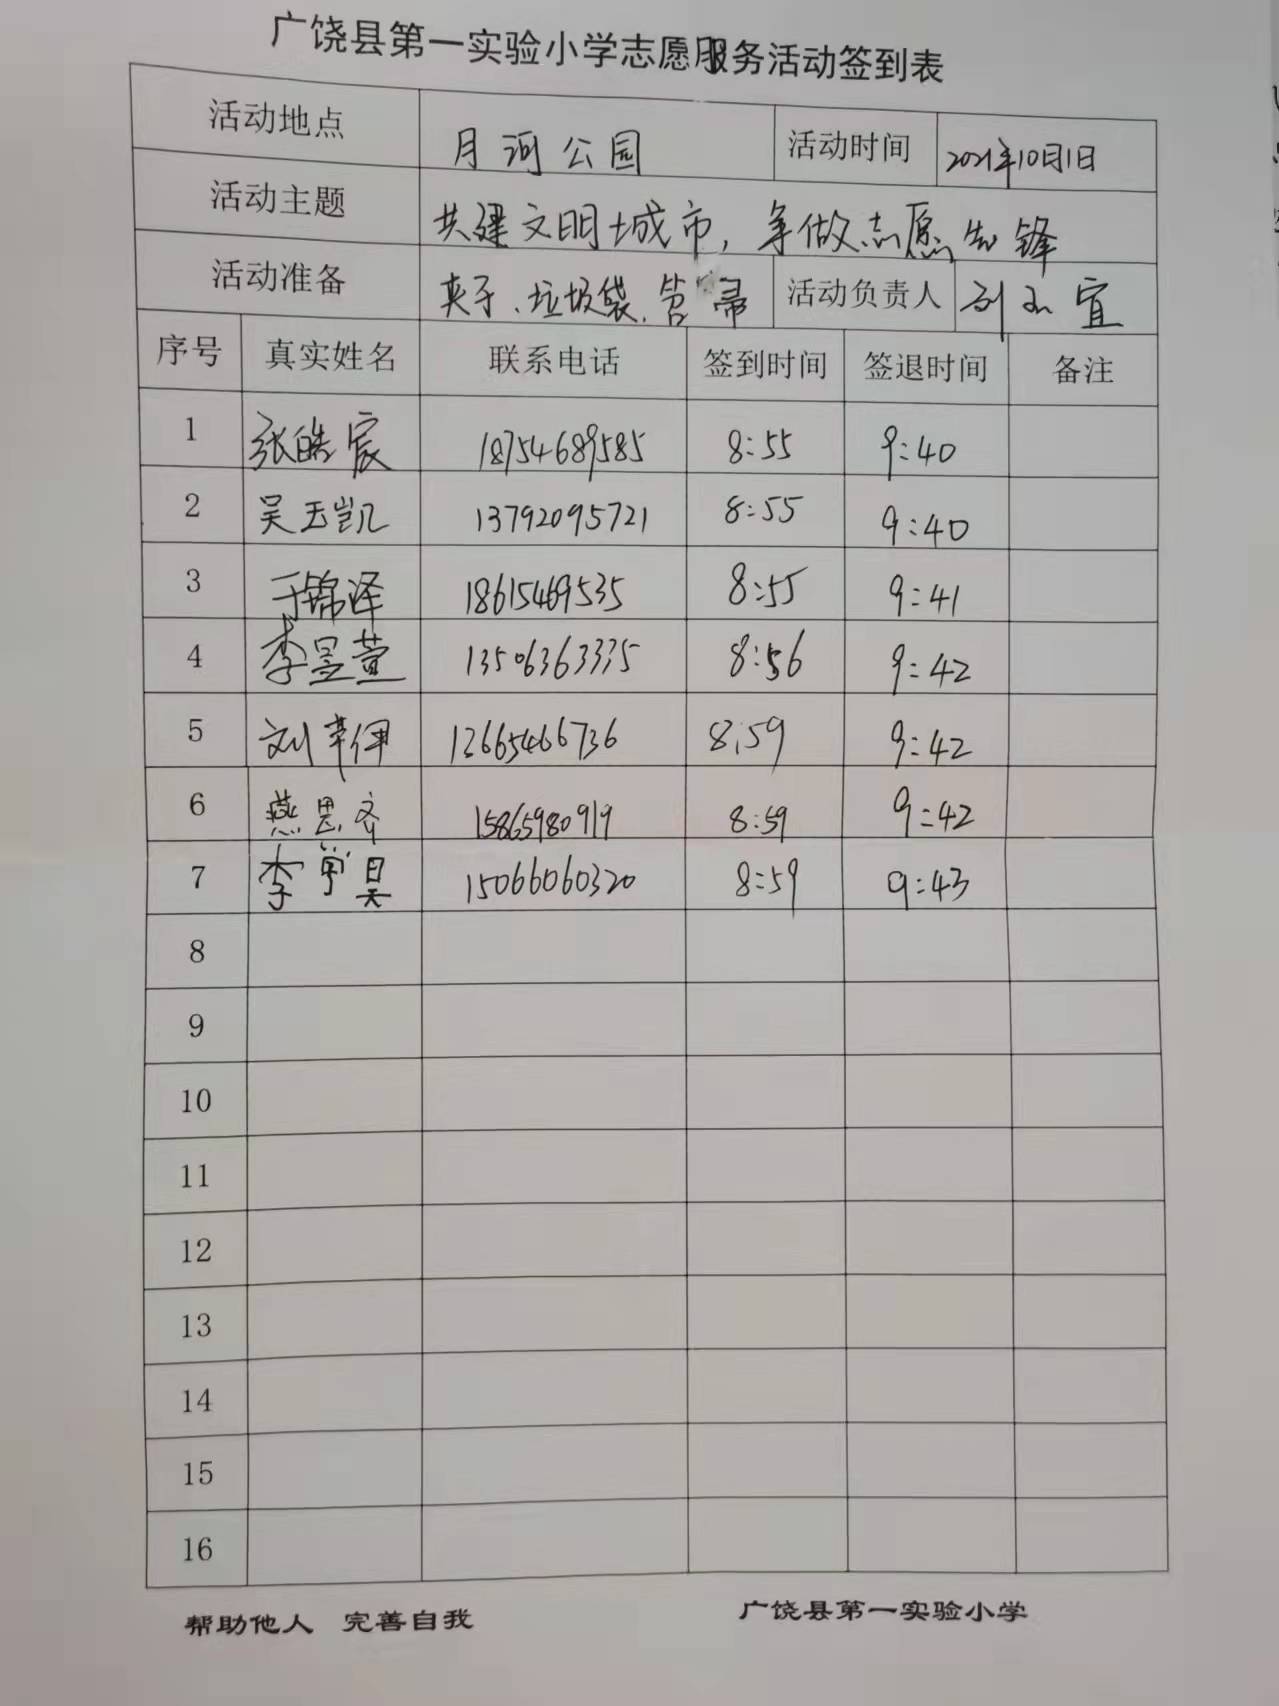 广饶县第一实验小学志愿服务活动签到表
活动地点 月河公园 活动时间 2021年10月1日
活动主题 共建文明城市，争做志愿先锋
活动准备 夹子、垃圾袋、笤帚 活动负责人 宜
序号 真实姓名 联系电话 签到时间 签退时间 备注
1 张皓宸 18754689585 8:55 9:40
2 吴玉凯 13792095721 8:55 9:40
3 于锦泽 18615469535 8:55 9:41
4 李昱萱 13506363335 8:56 9:42
5 刘 13665466736 8:59 9:42
6 燕思齐 15865980919 8:59 9:42
7 李 昊 15066060320 8:59 9:43
8
9
10
11
12
13
14
15
16
帮助他人 完善自我 广饶县第一实验小学